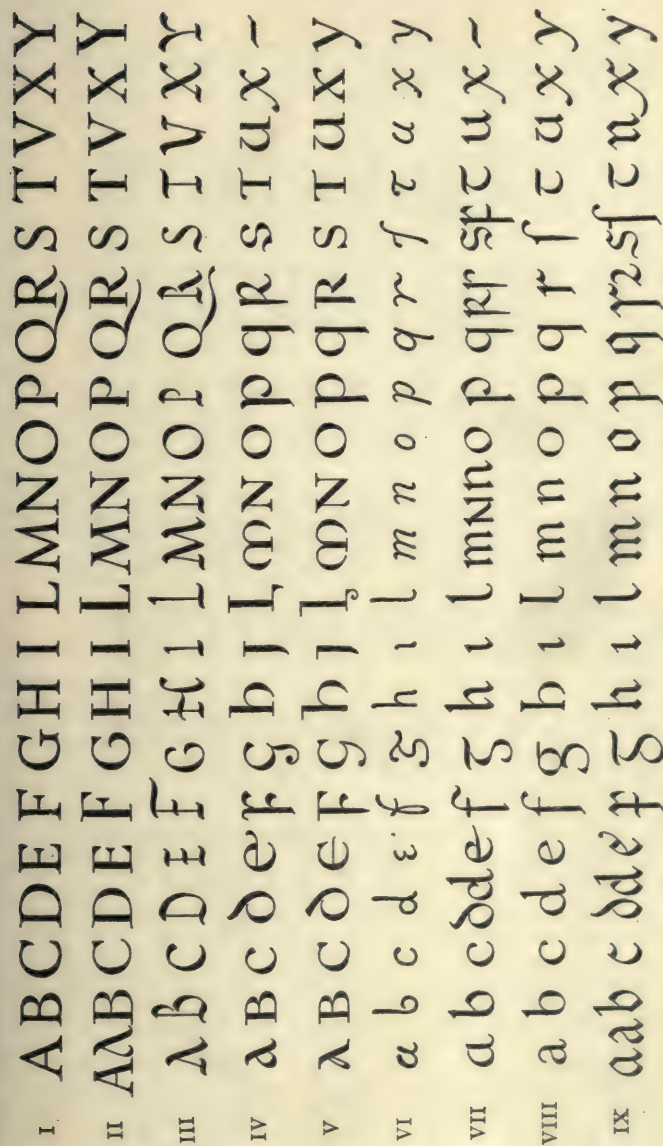 I A B C D E F G H I L M N O P Q R S T V X Y
II A A B C D E F G H I L M N O P Q R S T V X Y
III A B C D E F G H I L M N O P Q R S T V X Y
IV a B c d e F G h I L m N o p q R s T u x –
V a B C d e F G h I L m N O p q R S T u x y
VI a b c d e f g h ı l m n o p q r ſ t u x y
VII a b c d d e f g h ı l m N n o p q R r s ſ t u x –
VIII a b c d e f g h ı l m n o p q r ſ t u x y
IX a a b c d d e f g h ı l m n o p q r ꝛ s ſ t u x y